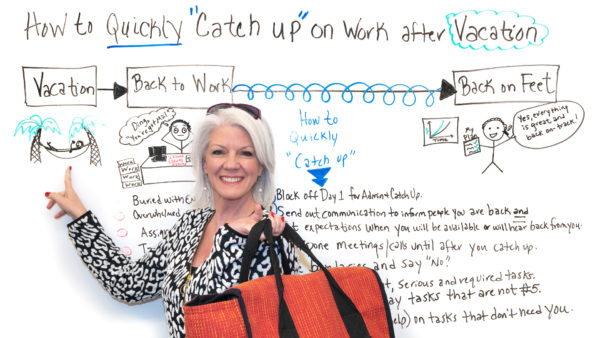 How to Quickly "Catch up" on Work after Vacation
Vacation
Back to Work
Back on Feet
How to
Quickly
"Catch up"
Time
My
Plan
Yes, everything
is great and
back on-track!
Work
Work
Work
Buried with
Overwhelmed
Block off Day 1 for Admin & Catch Up.
Send out communication to inform people you are back and
expectations when you will be available or will hear back from you.
meetings/calls until after you catch up.
and say "No."
serious and required tasks.
tasks that are not #5.
on tasks that don't need you.